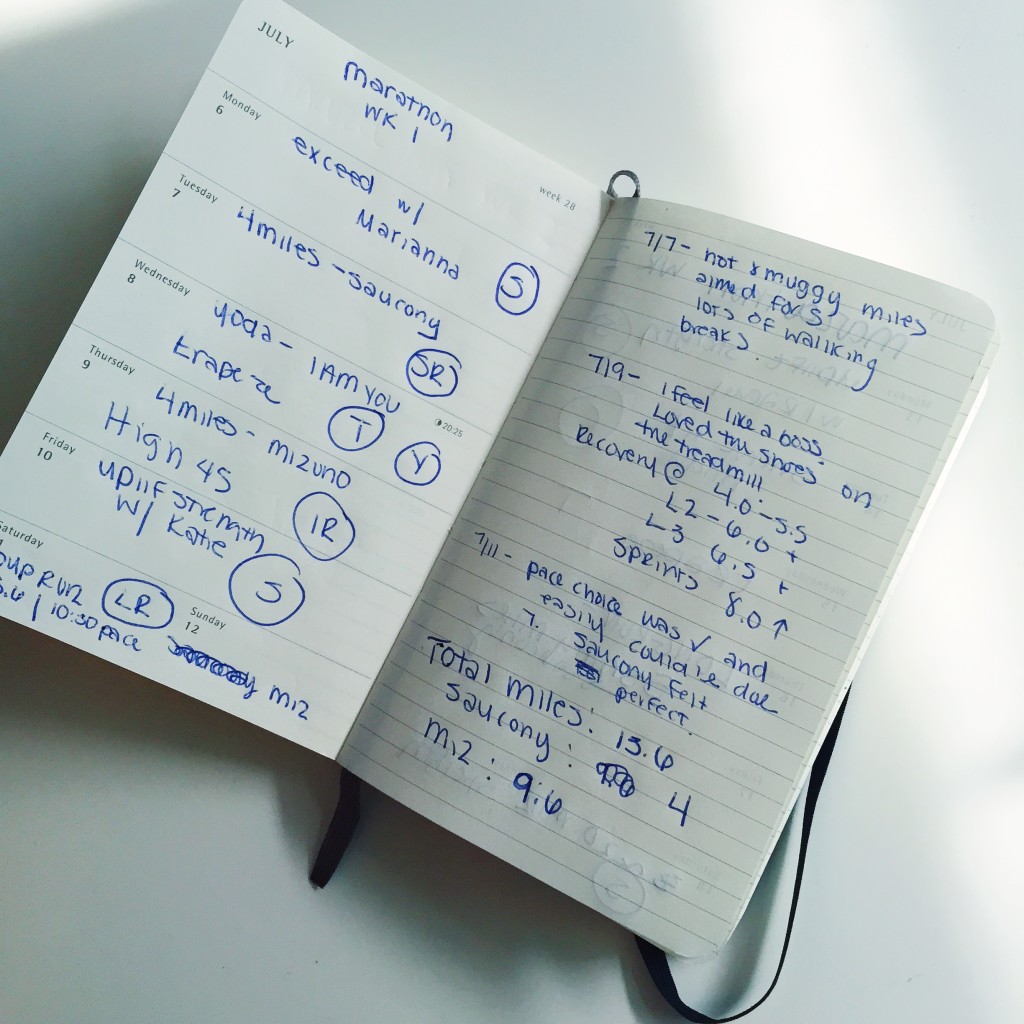 JULY
marathon
WK 1
week 28
Monday
6
exceed w/
Marianna
S
Tuesday
7
4miles - saucony
SR
Wednesday
8
yoga - I AM YOU
trapeze
T
Y
20:25
Thursday
9
4miles - mizuno
High 45
IR
Friday
10
uplift strength
w/ Katie
S
Saturday
RUN
LR
5.6 | 10:30 pace
Sunday
12
miz
7/7 - hot & muggy miles
aimed for 5
lots of walking
breaks.
7/9 - I feel like a boss.
Loved the shoes on
the treadmill
Recovery @ 4.0 - 5.5
L2 - 6.0 +
L3 6.5 +
sprints 8.0 ↑
7/11 - pace choice was ✓ and
easily could've doe
7. saucony felt
perfect.
Total miles: 13.6
saucony: 4
miz: 9.6